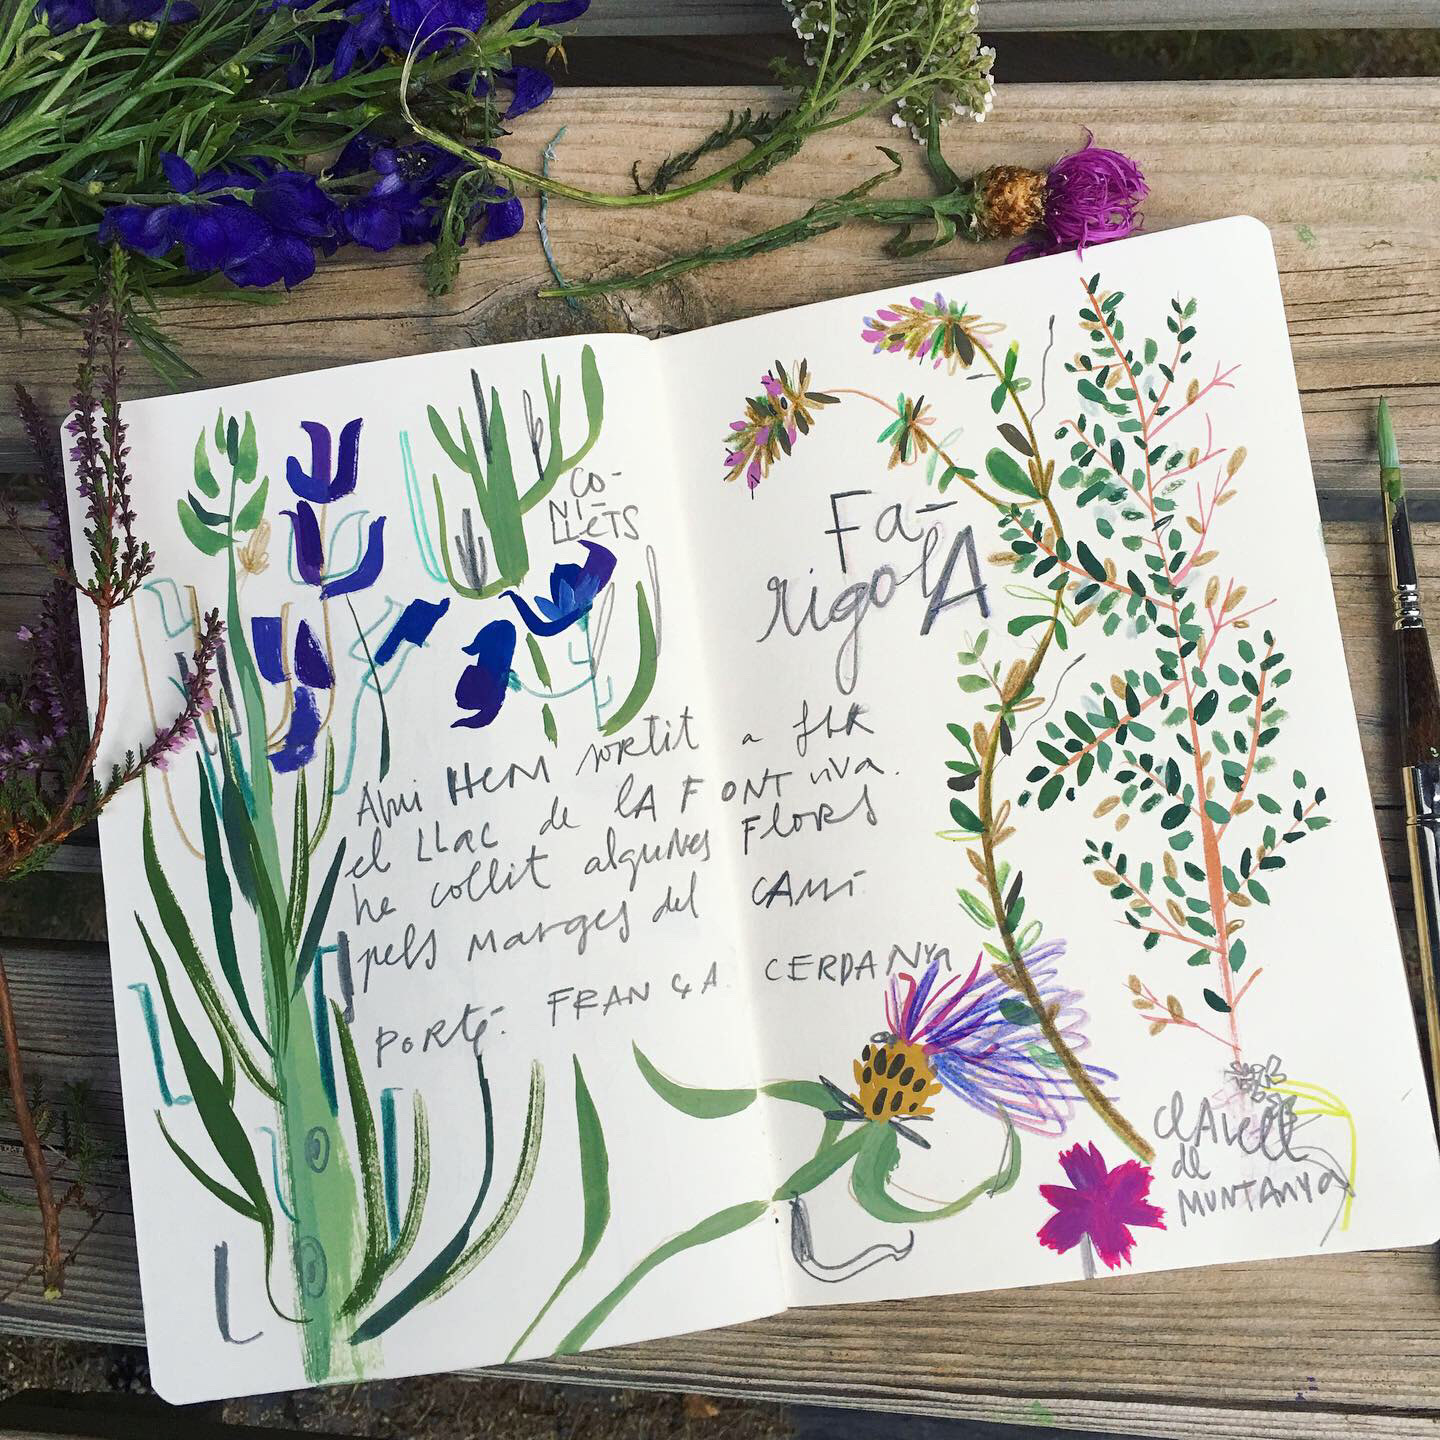 CO-
NI-
LLETS
Fa-
rigolA
Avui HEM sortit a fER
el LLac de lA FONT viva.
he collit algunes FlorS
pels Marges del CAMí.
PORTÉ. FRANÇA. CERDANYA
ClAvell
de
MUNTANYA